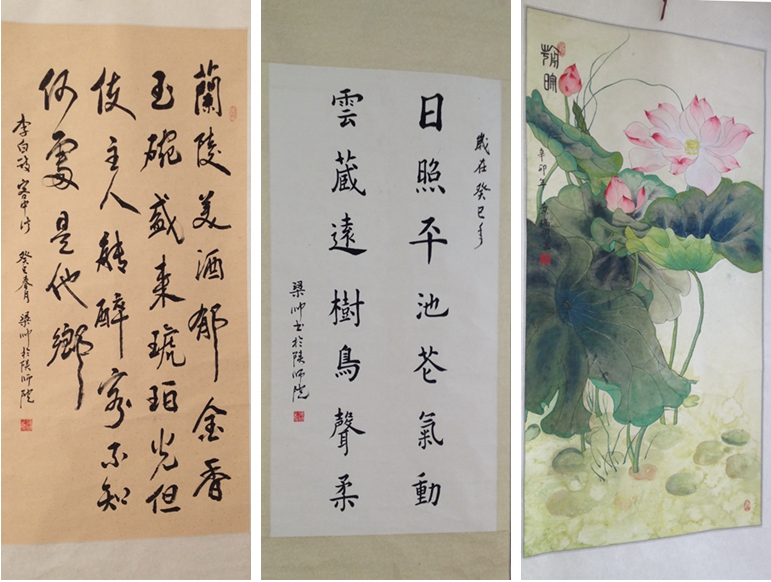 蘭陵美酒郁金香
玉碗盛来琥珀光但
使主人能醉客不知
何處是他鄉
李白诗 客中行 癸巳春月 梁帅於陕师院
歲在癸巳年
日照平池花氣動
雲蔵遠樹鳥聲柔
梁帅书於陕师院
辛卯年